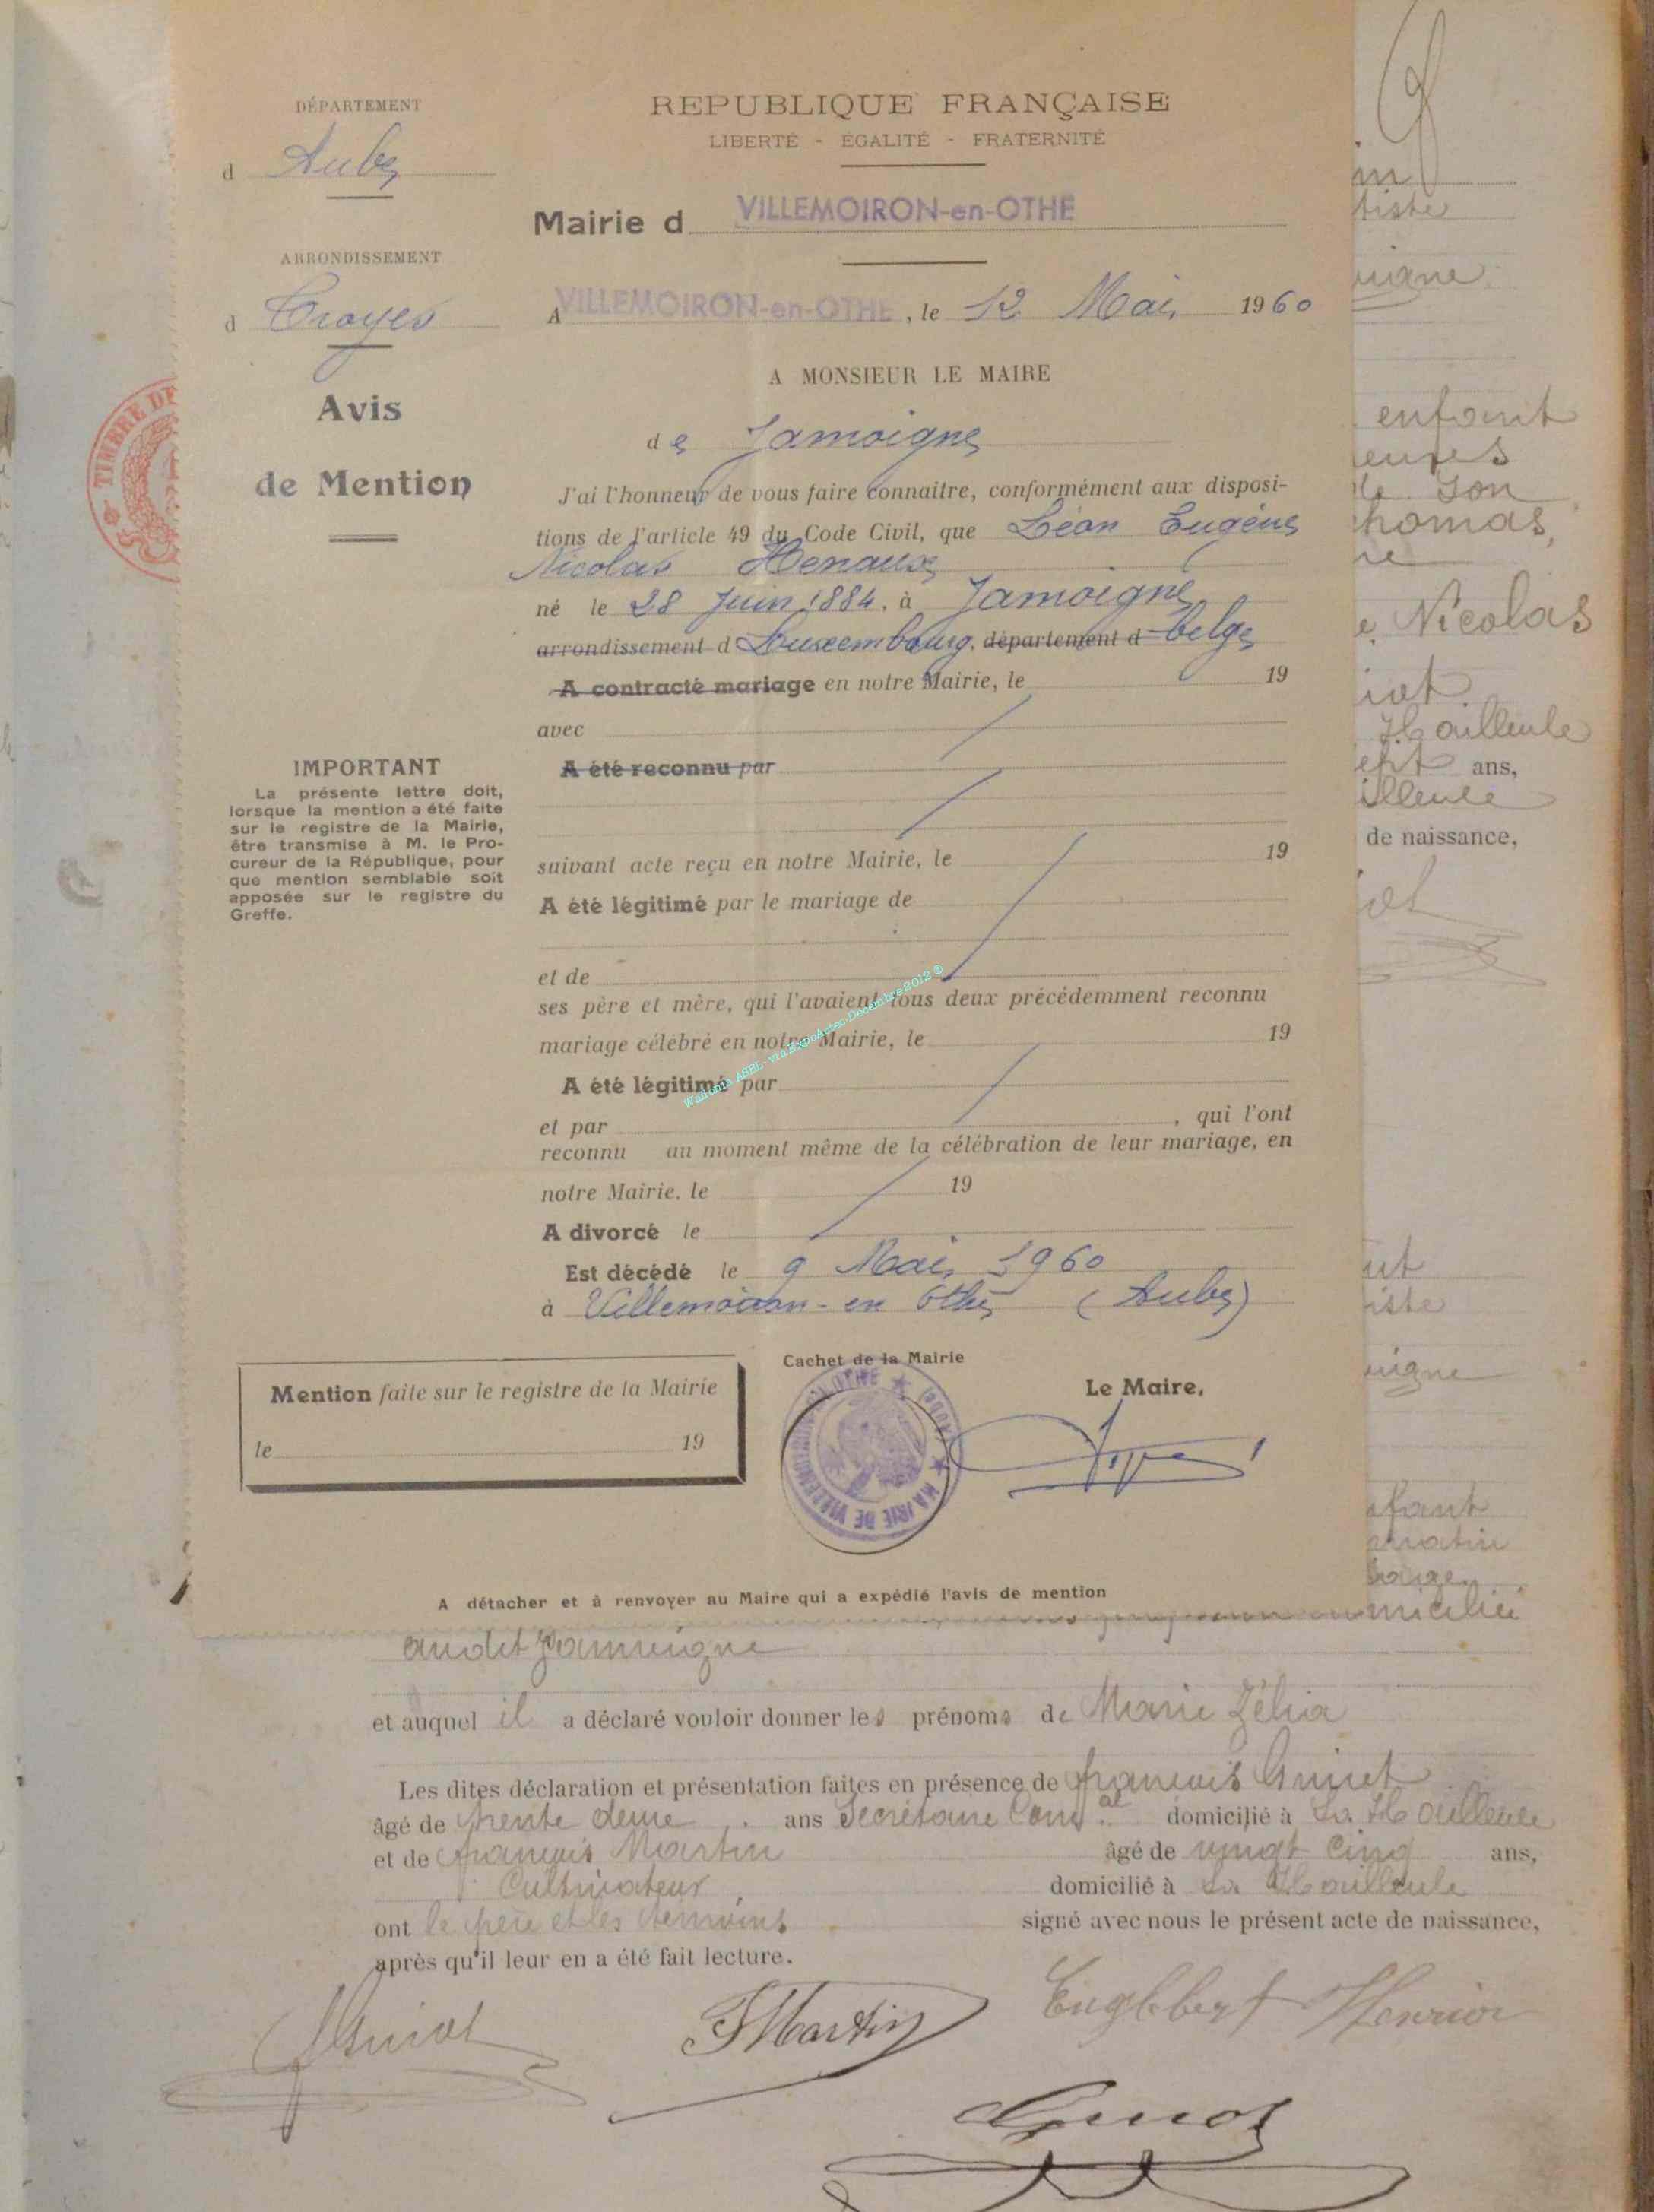 DÉPARTEMENT
d Aube
ARRONDISSEMENT
d Troyes
Avis
de Mention
REPUBLIQUE FRANÇAISE
LIBERTÉ - ÉGALITÉ - FRATERNITÉ
Mairie d VILLEMOIRON-en-OTHE
A VILLEMOIRON-en-OTHE, le 12 Mai 1960
A MONSIEUR LE MAIRE
de Jamoigne
J'ai l'honneur de vous faire connaitre, conformément aux disposi-
tions de l'article 49 du Code Civil, que Léon Eugène
Nicolas Henaux
né le 28 Juin 1884, à Jamoigne
arrondissement d Luxembourg, département d belge
A contracté mariage en notre Mairie, le 19
avec
A été reconnu par
suivant acte reçu en notre Mairie, le 19
A été légitimé par le mariage de
et de
ses père et mère, qui l'avaient tous deux précédemment reconnu
mariage célébré en notre Mairie, le 19
A été légitimé par
et par , qui l'ont
reconnu au moment même de la célébration de leur mariage, en
notre Mairie, le 19
A divorcé le
Est décédé le 9 Mai 1960
à Villemoiron-en Othe (Aube)
IMPORTANT
La présente lettre doit,
lorsque la mention a été faite
sur le registre de la Mairie,
être transmise à M. le Pro-
cureur de la République, pour
que mention semblable soit
apposée sur le registre du
Greffe.
Mention faite sur le registre de la Mairie
le 19
Cachet de la Mairie
Le Maire,
MAIRIE DE VILLEMOIRON-EN-OTHE (AUBE)
A détacher et à renvoyer au Maire qui a expédié l'avis de mention
TIMBRE DE
Wallonia ASBL - via ExpoActes-Decembre 2012 ®
enfant
son
homas,
Nicolas
Hailleule
ans,
de naissance,
audit Jamoigne
et auquel il a déclaré vouloir donner les prénoms de Marie Zélia
Les dites déclaration et présentation faites en présence de François Guiot
âgé de trente deux ans Secrétaire Comal domicilié à La Hailleule
et de François Martin âgé de vingt cinq ans,
Cultivateur domicilié à La Hailleule
ont le père et les témoins signé avec nous le présent acte de naissance,
après qu'il leur en a été fait lecture.
Guiot FMartin Englebert Henrion